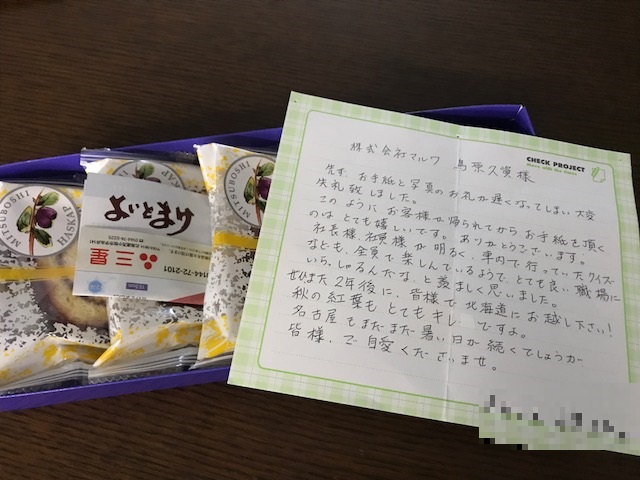 MITSUBOSHI
HASKAP
よいとまけ
三星
0144-72-2101
MITSUBOSHI
HASKAP
CHECK PROJECT
株式会社マルワ 鳥原久資様
先ず、お手紙と写真のお礼が遅くなってしまい大変
失礼致しました。
このように お客様が帰られてからお手紙も頂く
のは とても嬉しいです。ありがとうございます。
社長様、社員様が明るく、車内で行っていたクイズ
なども、全員で楽しんでいるようで、とても良い職場に
いらっしゃるんだな、と羨ましく思いました。
ぜひまた2年後に、皆様で北海道にお越し下さい!
秋の紅葉も とてもキレーですよ。
名古屋もまだまだ暑い日が続くでしょうか
皆様、ご自愛くださいませ。